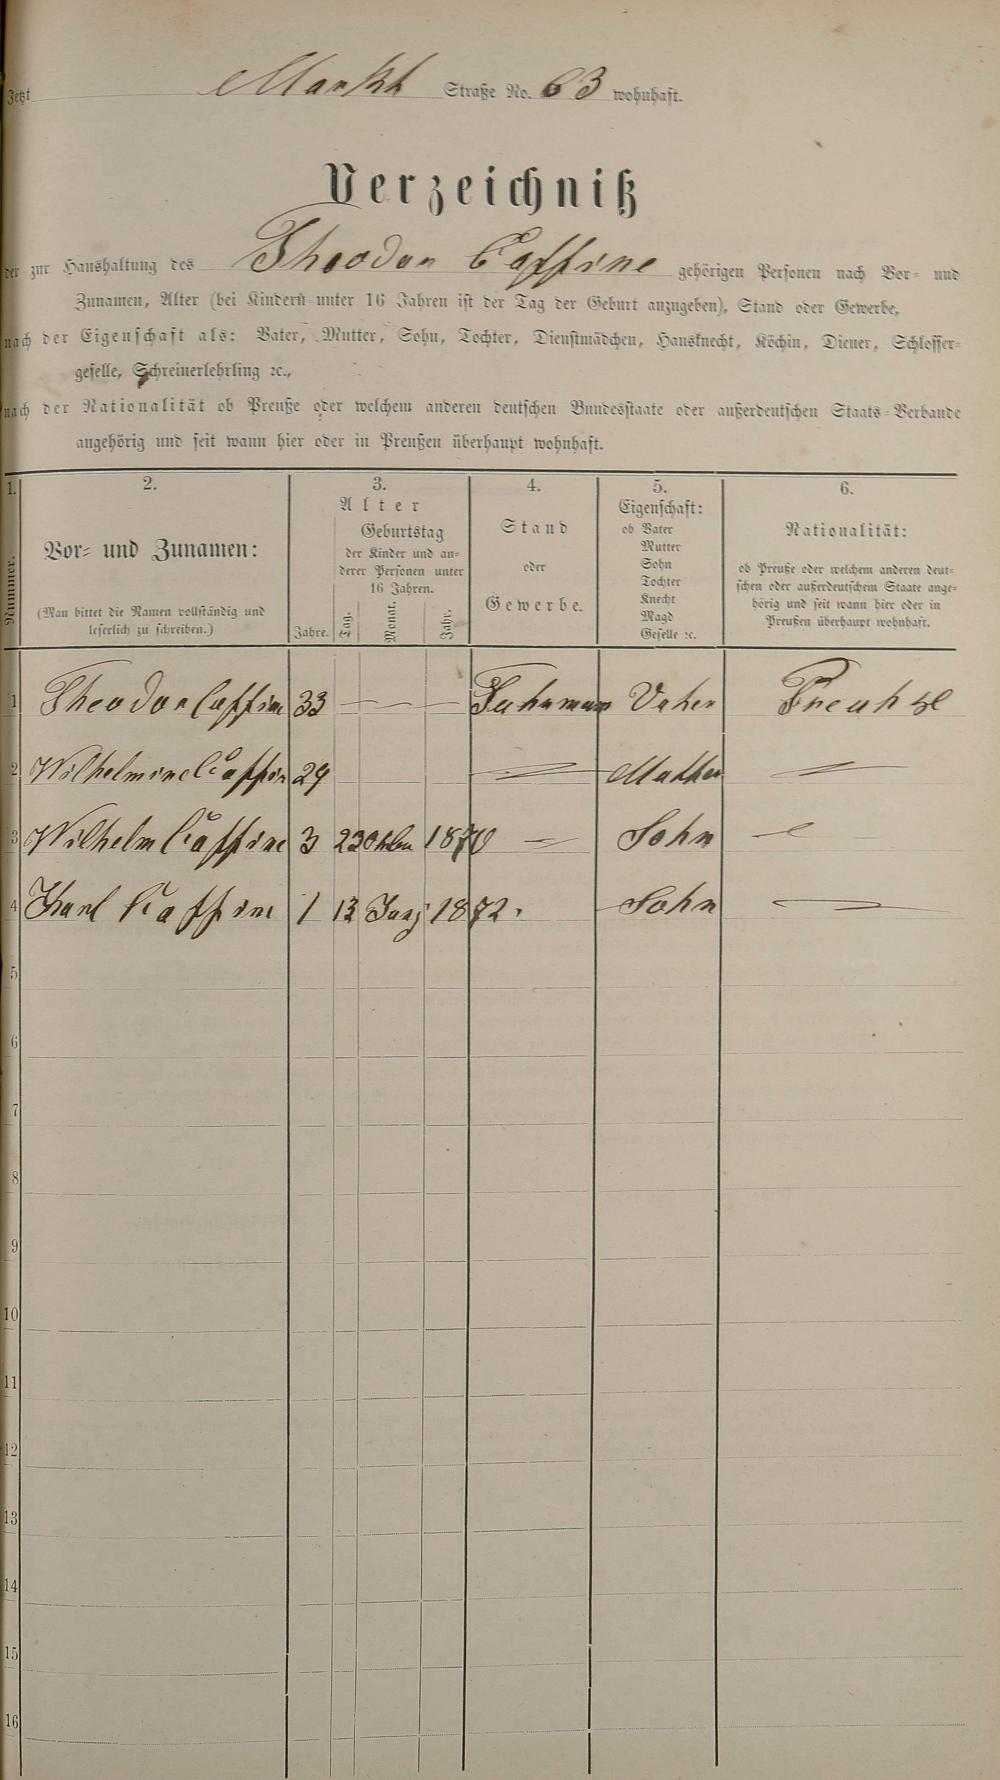 Jetzt Markt Straße No. 63 wohnhaft.
Verzeichniß
der zur Haushaltung des Theodor Caffine gehörigen Personen nach Vor- und
Zunamen, Alter (bei Kindern unter 16 Jahren ist der Tag der Geburt anzugeben), Stand oder Gewerbe,
nach der Eigenschaft als: Vater, Mutter, Sohn, Tochter, Dienstmädchen, Hausknecht, Köchin, Diener, Schlosser-
geselle, Schreinerlehrling ꝛc.,
nach der Nationalität ob Preuße oder welchem anderen deutschen Bundesstaate oder außerdeutschen Staats-Verbande
angehörig und seit wann hier oder in Preußen überhaupt wohnhaft.
1.
Nummer.
2.
Vor- und Zunamen:
(Man bittet die Namen vollständig und
leserlich zu schreiben.)
3.
Alter
Jahre.
Geburtstag
der Kinder und an-
derer Personen unter
16 Jahren.
Tag. Monat. Jahr.
4.
Stand
oder
Gewerbe.
5.
Eigenschaft:
ob Vater
Mutter
Sohn
Tochter
Knecht
Magd
Geselle ꝛc.
6.
Nationalität:
ob Preuße oder welchem anderen deut-
schen oder außerdeutschem Staate ange-
hörig und seit wann hier oder in
Preußen überhaupt wohnhaft.
1 Theodor Caffine 33 — — — Fuhrmann Vater
2 Wilhelmine Caffin 29 Mutter
3 Wilhelm Caffine 3 23 1870 Sohn
4 Karl Caffine 1 13 Junj 1872. Sohn
5
6
7
8
9
10
11
12
13
14
15
16